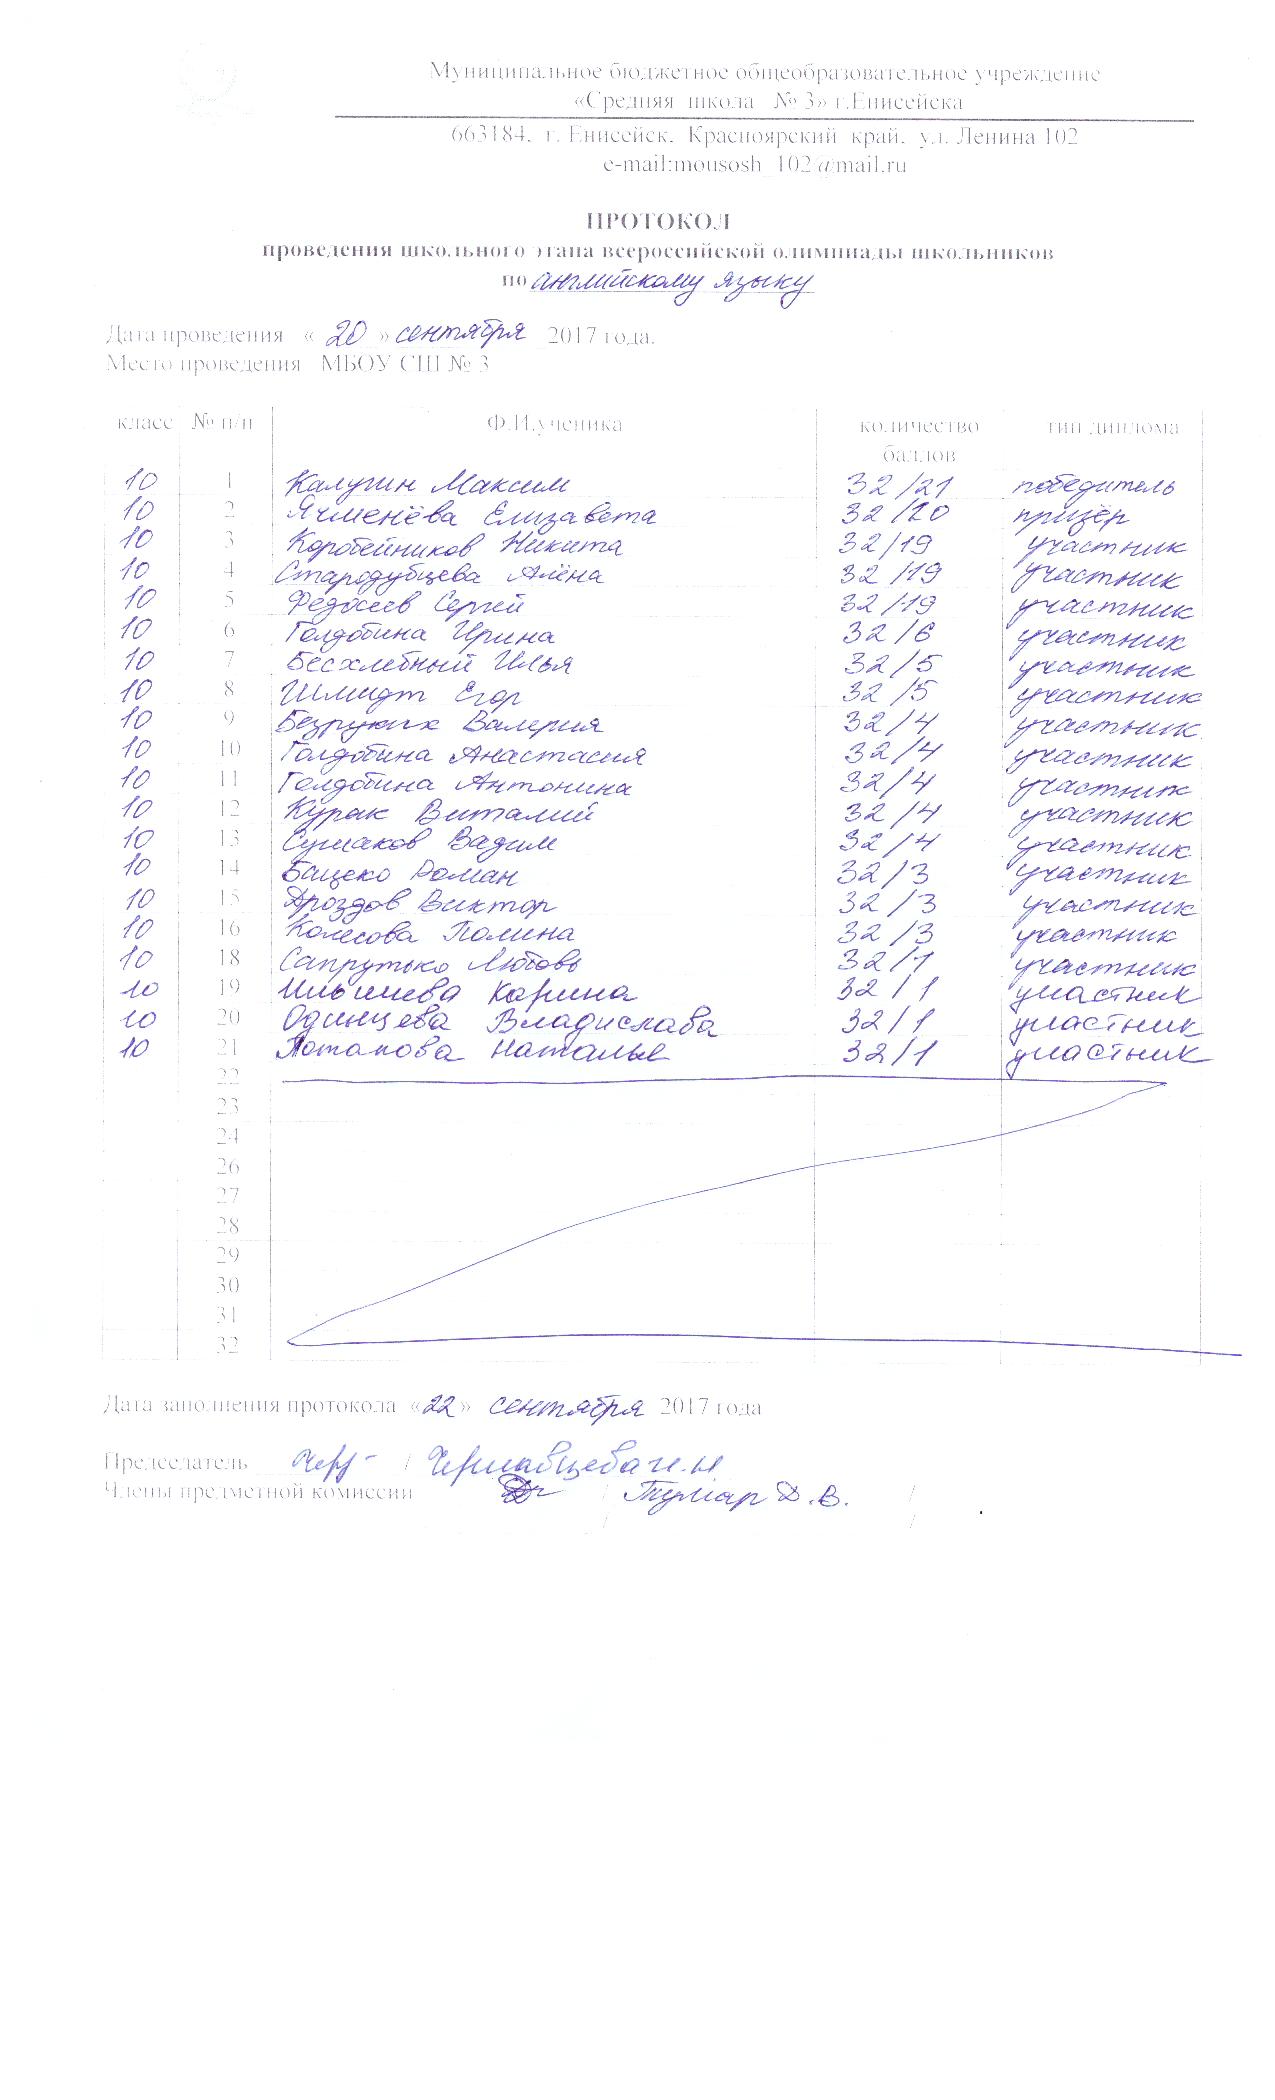 Муниципальное бюджетное общеобразовательное учреждение
«Средняя школа № 3» г.Енисейска
663184, г. Енисейск, Красноярский край, ул. Ленина 102
e-mail:mousosh_102@mail.ru
ПРОТОКОЛ
проведения школьного этапа всероссийской олимпиады школьников
по английскому языку
Дата проведения « 20 » сентября 2017 года.
Место проведения МБОУ СШ № 3
класс № п/п Ф.И.ученика количество баллов тип диплома
10 1 Калугин Максим 32/21 победитель
10 2 Ячменёва Елизавета 32/20 призёр
10 3 Коробейников Никита 32/19 участник
10 4 Стародубцева Алёна 32/19 участник
10 5 Федосеев Сергей 32/19 участник
10 6 Голдобина Ирина 32/6 участник
10 7 Бесхлебный Илья 32/5 участник
10 8 Шмидт Егор 32/5 участник
10 9 Безруких Валерия 32/4 участник
10 10 Голдобина Анастасия 32/4 участник
10 11 Голдобина Антонина 32/4 участник
10 12 Курак Виталий 32/4 участник
10 13 Сушаков Вадим 32/4 участник
10 14 Бацеко Роман 32/3 участник
10 15 Дроздов Виктор 32/3 участник
10 16 Колесова Полина 32/3 участник
10 18 Сапрутько Любовь 32/1 участник
10 19 Ильичева Карина 32/1 участник
10 20 Одинцева Владислава 32/1 участник
10 21 Потапова Наталье 32/1 участник
22
23
24
26
27
28
29
30
31
32
Дата заполнения протокола «22» сентября 2017 года
Председатель / И.Н.
Члены предметной комиссии / Д.В. /
/ /